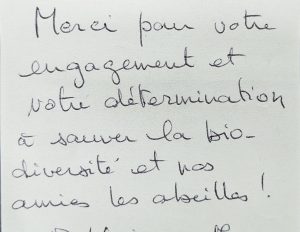 Merci pour votre
engagement et
votre détermination
à sauver la bio-
diversité et nos
amies les abeilles !